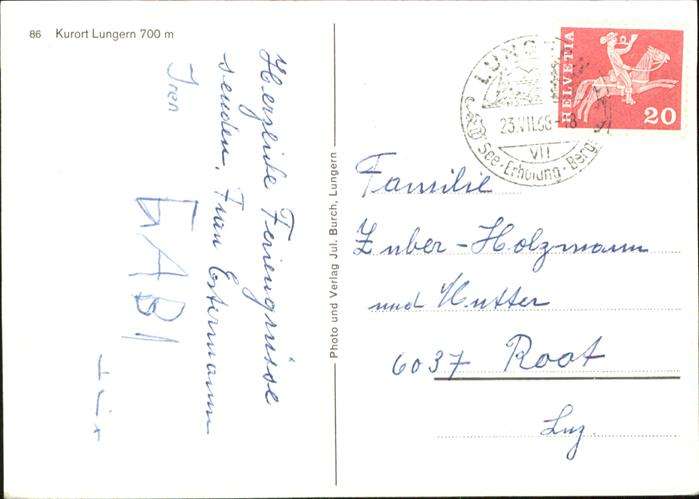 86 Kurort Lungern 700 m
Herzliche Feriengrüsse
senden, Frau Estermann
Iren
GABI
Photo und Verlag Jul. Burch, Lungern
LUNGERN
23.VII.68-18
VII
See·Erholung·Berge
HELVETIA
20
Familie
Zuber-Holzmann
und Hutter
6037 Root
Luz.